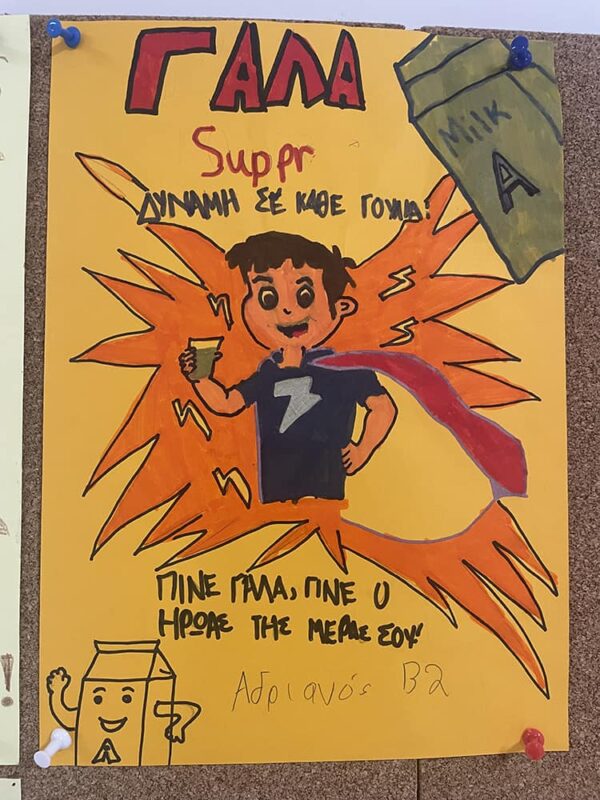 ΓΑΛΑ
Milk
A
Suppr
ΔΥΝΑΜΗ ΣΕ ΚΑΘΕ ΓΟΥΛΙΑ!
ΠΙΝΕ ΓΑΛΑ, ΓΙΝΕ Ο
ΗΡΩΑΣ ΤΗΣ ΜΕΡΑΣ ΣΟΥ!
Αδριανός Β2
A
!